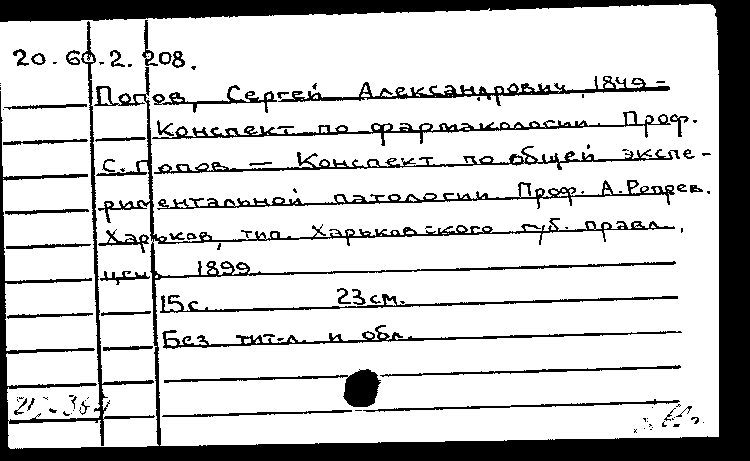 20.60.2.208.
Попов, Сергей Александрович, 1849-
Конспект по фармакологии. Проф.
С. Попов. — Конспект по общей экспе-
риментальной патологии Проф. А. Репрев.
Харьков, тип. Харьковского губ. правл.,
ценз. 1899.
15с. 23см.
Без тит.л. и обл.